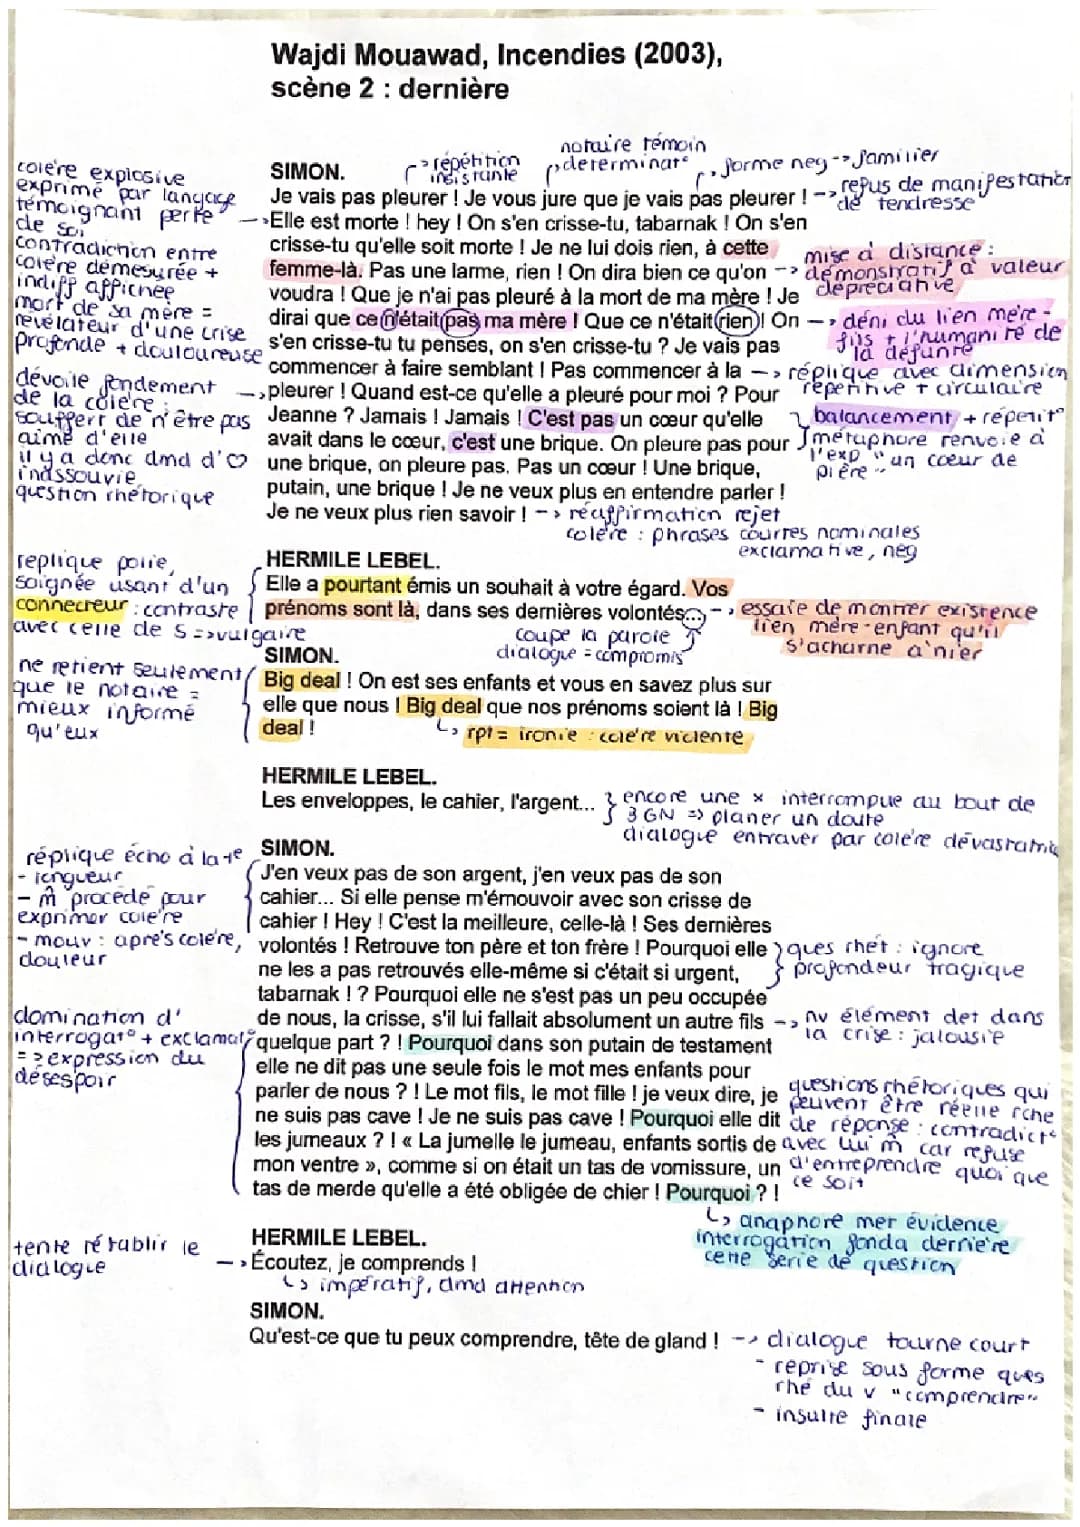 Wajdi Mouawad, Incendies (2003),
scène 2 : dernière
notaire témoin
répétition
insistante
determinat°
forme neg -> familier
SIMON.
Je vais pleurer ! Je vous jure que je vais pleurer !
-> refus de manifestation
de tendresse
Elle est morte ! hey ! On s'en crisse-tu, tabarnak ! On s'en
crisse-tu qu'elle soit morte ! Je ne lui dois rien, à cette
femme-là. Pas une larme, rien ! On dira bien ce qu'on
voudra ! Que je n'ai pas pleuré à la mort de ma mère ! Je
dirai que ce n'était pas ma mère ! Que ce n'était rien ! On
s'en crisse-tu tu penses, on s'en crisse-tu ? Je vais pas
commencer à faire semblant ! Pas commencer à la
pleurer ! Quand est-ce qu'elle a pleuré pour moi ? Pour
Jeanne ? Jamais ! Jamais ! C'est pas un cœur qu'elle
avait dans le cœur, c'est une brique. On pleure pas pour
une brique, on pleure pas. Pas un cœur ! Une brique,
putain, une brique ! Je ne veux plus en entendre parler !
Je ne veux plus rien savoir !
colère explosive
exprimé par langage
témoignant perte
de soi
contradiction entre
colère démesurée +
indiff affichée
mort de sa mère =
révélateur d'une crise
profonde + douloureuse
dévoile fondement
de la colère :
souffert de n'être pas
aimé d'elle
il y a donc dmd d'♡
inassouvie
question rhétorique
mise à distance :
-> démonstratif à valeur
dépréciative
-> déni du lien mère-
fils + l'humanité de
la défunte
-> réplique avec dimension
répétitive + circulaire
balancement + répétit°
métaphore renvoie à
l'exp "un cœur de
pierre"
-> réaffirmation rejet
colère : phrases courtes nominales
exclamative, neg
HERMILE LEBEL.
Elle a pourtant émis un souhait à votre égard. Vos
prénoms sont là, dans ses dernières volontés...
réplique polie,
soignée usant d'un
connecteur : contraste
avec celle de S => vulgaire
-> essaie de montrer existence
lien mère-enfant qu'il
s'acharne à nier
coupe la parole
dialogue = compromis
SIMON.
Big deal ! On est ses enfants et vous en savez plus sur
elle que nous ! Big deal que nos prénoms soient là ! Big
deal !
ne retient seulement
que le notaire =
mieux informé
qu'eux
rpt = ironie : colère violente
HERMILE LEBEL.
Les enveloppes, le cahier, l'argent...
encore une x interrompue au bout de
3 GN => planer un doute
dialogue entraver par colère dévastatrice
SIMON.
J'en veux pas de son argent, j'en veux pas de son
cahier... Si elle pense m'émouvoir avec son crisse de
cahier ! Hey ! C'est la meilleure, celle-là ! Ses dernières
volontés ! Retrouve ton père et ton frère ! Pourquoi elle
ne les a pas retrouvés elle-même si c'était si urgent,
tabarnak ! ? Pourquoi elle ne s'est pas un peu occupée
de nous, la crisse, s'il lui fallait absolument un autre fils
quelque part ? ! Pourquoi dans son putain de testament
elle ne dit pas une seule fois le mot mes enfants pour
parler de nous ? ! Le mot fils, le mot fille ! je veux dire, je
ne suis pas cave ! Je ne suis pas cave ! Pourquoi elle dit
les jumeaux ? ! « La jumelle le jumeau, enfants sortis de
mon ventre », comme si on était un tas de vomissure, un
tas de merde qu'elle a été obligée de chier ! Pourquoi ? !
réplique écho à la 1e
- longueur
- m̂ procédé pour
exprimer colère
- mouv : après colère,
douleur
domination d'
interrogat° + exclamat°
=> expression du
désespoir
ques rhét : ignore
profondeur tragique
-> nv élément det dans
la crise : jalousie
questions rhétoriques qui
peuvent être réelle rche
de réponse : contradict°
avec lui m̂ car refuse
d'entreprendre quoi que
ce soit
anaphore met évidence
interrogation fonda derrière
cette série de question
HERMILE LEBEL.
Écoutez, je comprends !
tente rétablir le
dialogue
impératif, dmd attention
SIMON.
Qu'est-ce que tu peux comprendre, tête de gland !
-> dialogue tourne court
- reprise sous forme ques
rhé du v "comprendre"
- insulte finale